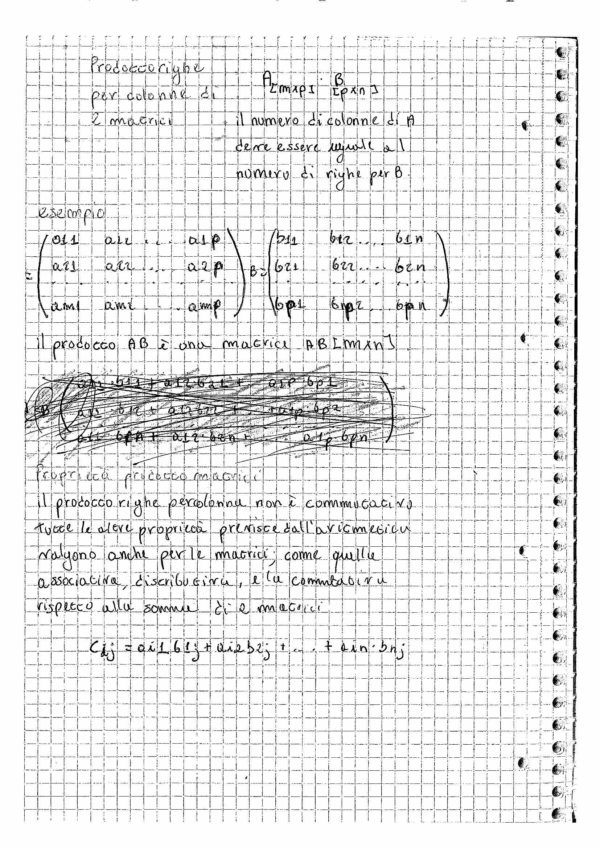 Prodotto righe
per colonne di
2 matrici
A[mxp] · B[pxn]
il numero di colonne di A
deve essere uguale al
numero di righe per B
esempio
= ( a11 a12 .... a1p ) B= ( b11 b12 .... b1n )
a21 a22 .... a2p b21 b22 .... b2n
.... .... .... .... .... ....
am1 am2 amp bp1 bp2 bpn
il prodotto AB è una matrice AB[mxn]
a11·b11 + a12b21 + a1p·bp1
a11·b12 + a12b22 + ... + a1p·bp2
a12·b2n + ... a1p·bpn
Proprietà prodotto matrici
il prodotto righe per colonna non è commutativo
tutte le altre proprietà previste dall'aritmetica
valgono anche per le matrici, come quella
associativa, distributiva, e la commutativa
rispetto alla somma di 2 matrici
Cij = ai1 b1j + ai2b2j + ... + ain·bnj